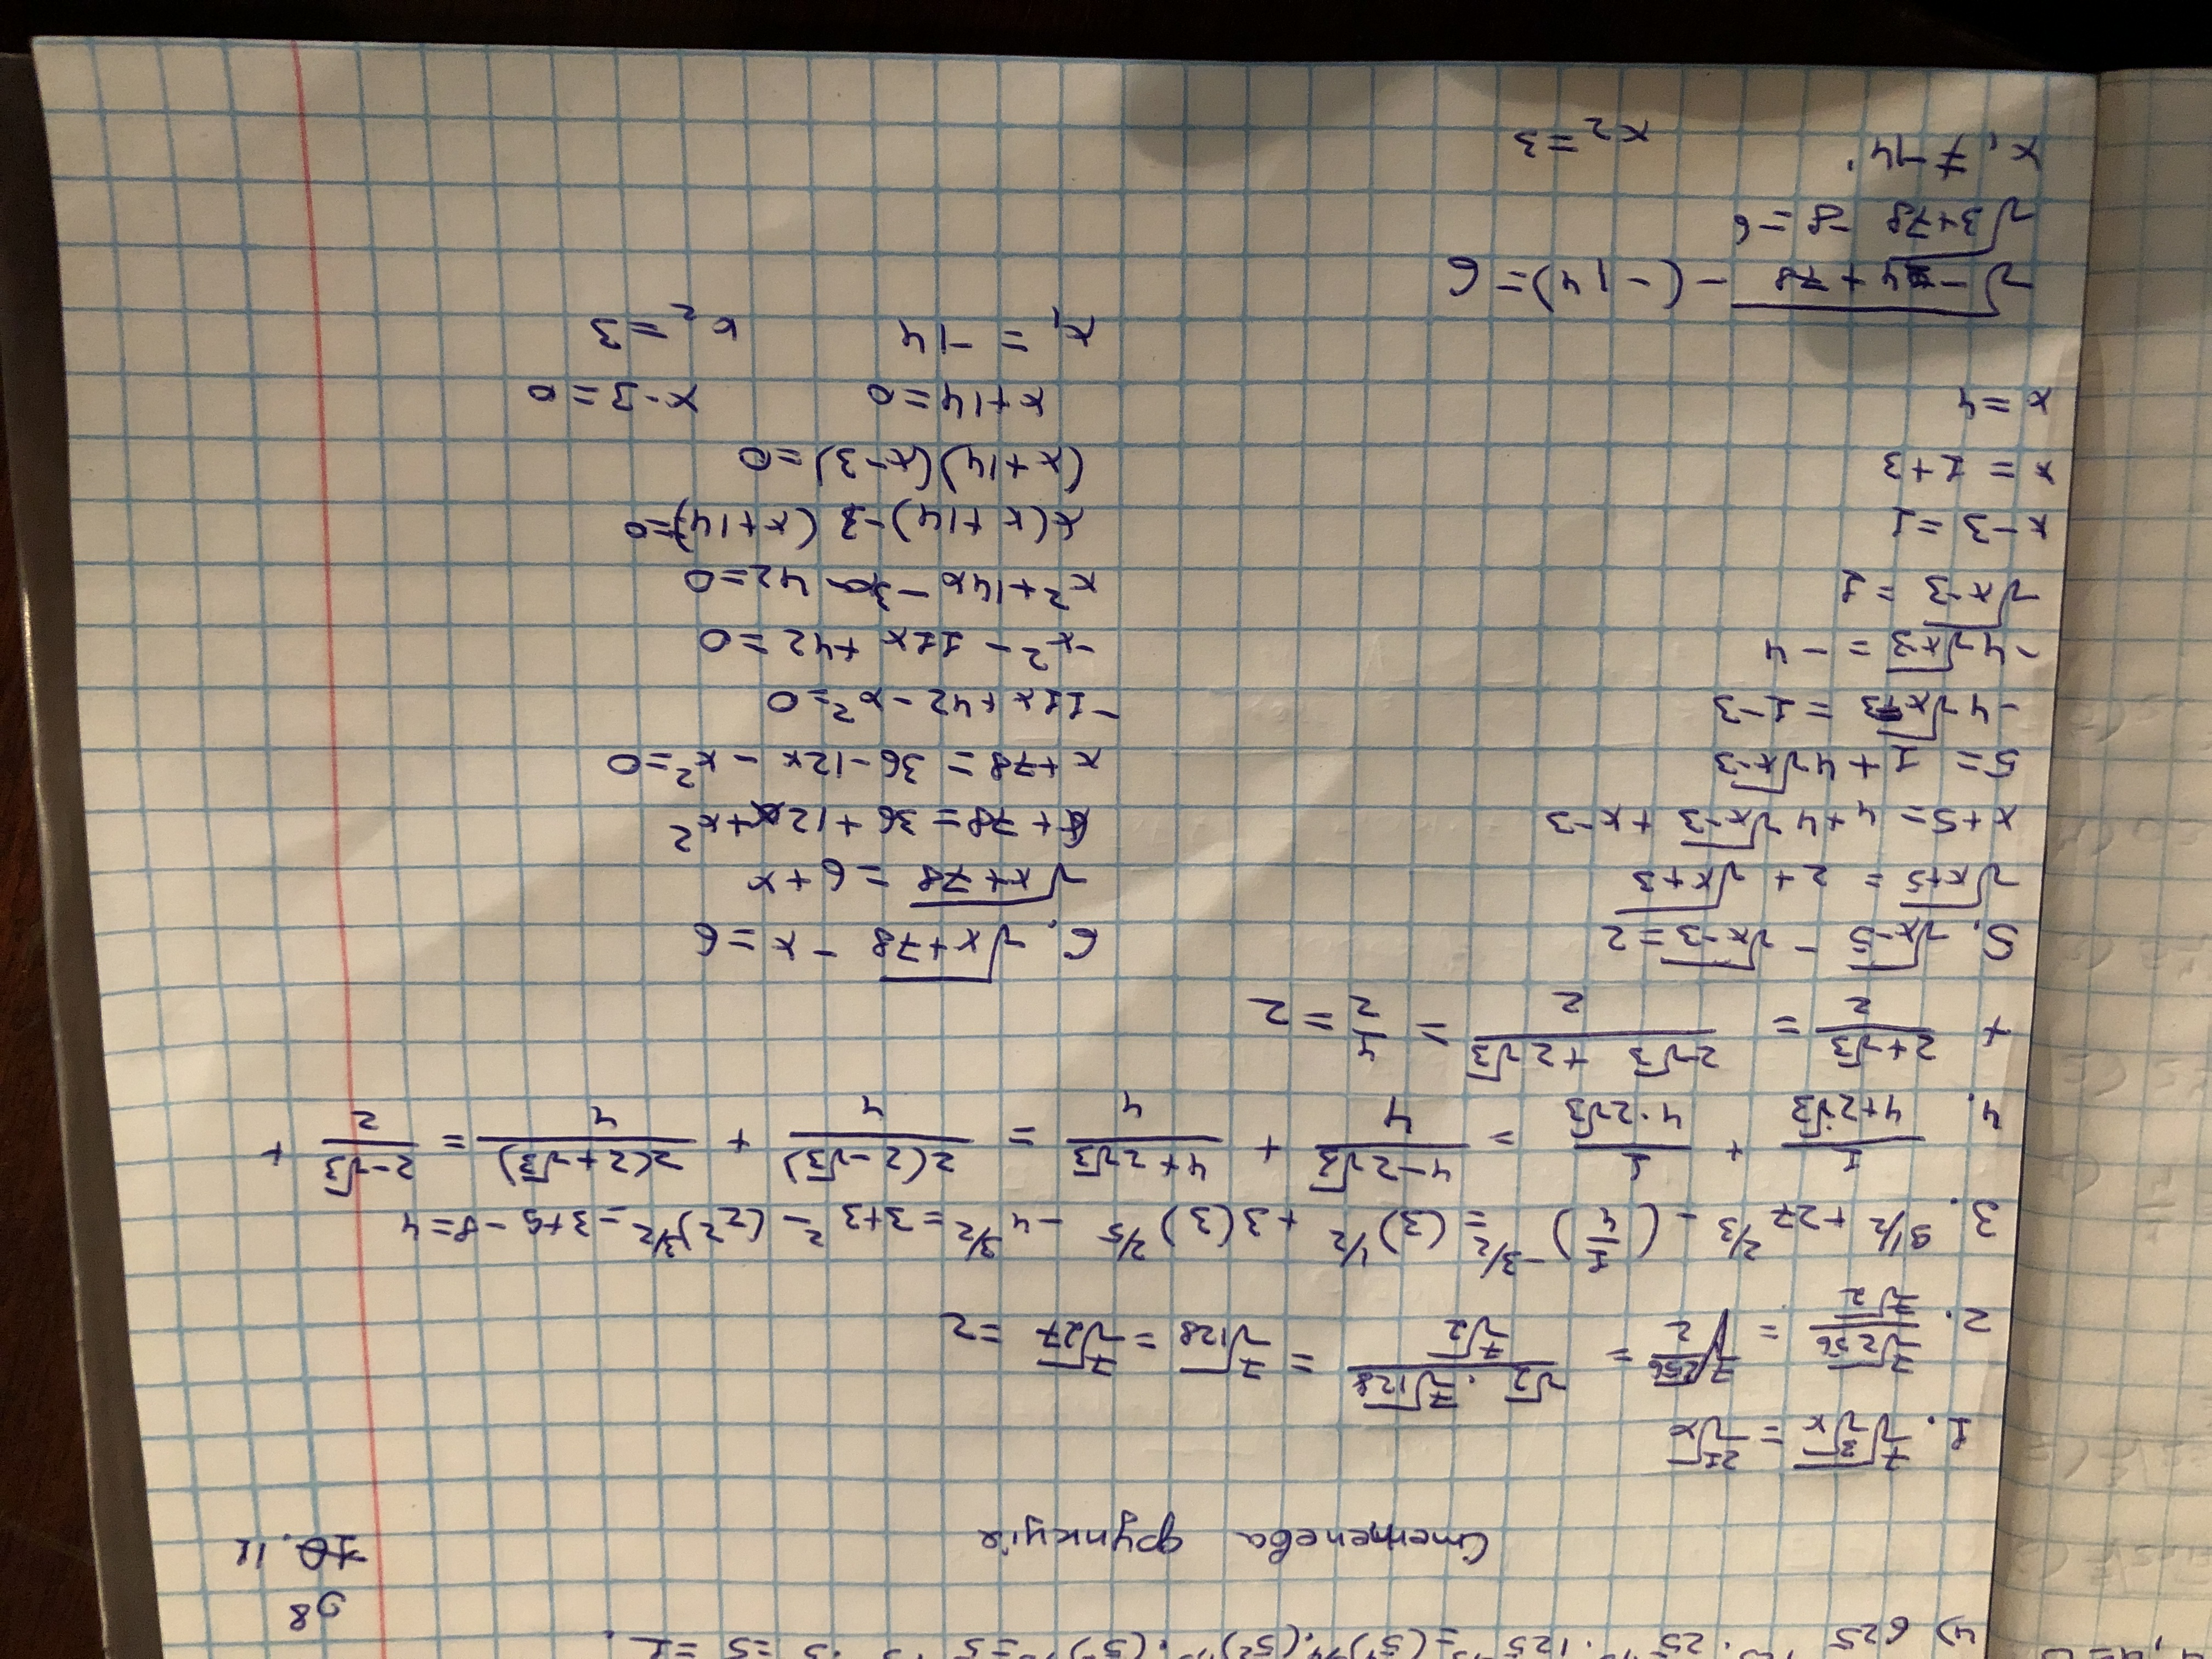 4) 625
08
10.11
Степенева функція
1. ⁷√³√x = ²¹√x
2. ⁷√256 / ⁷√2 = ⁷√256/2 = √2 · ⁷√128 / ⁷√2 = ⁷√128 = ⁷√2⁷ = 2
3. 9^1/2 + 27^2/3 - (1/4)^-3/2 = (3)^1/2 + 3(3)^2/5 - 4^3/2 = 3+3² - (2²)^3/2 = 3+9-8=4
4. 1/4+2√3 + 1/4·2√3 = 4-2√3/4 + 4+2√3/4 = 2(2-√3)/4 + 2(2+√3)/4 = 2-√3/2 +
+ 2+√3/2 = 2√3 +2√3/2 = 4/2 = 2
5. √x-5 - √x-3 = 2
√x+5 = 2 + √x+3
x+5 = 4+4√x-3 +x-3
5 = 1 + 4√x-3
-4√x-3 = 1-3
-4√x-3 = -4
√x-3 = 1
x-3 = 1
x = 1+3
x = 4
6. √x+78 - x = 6
√x+78 = 6+x
x+78 = 36+12x+x²
x+78 = 36-12x-x²=0
-11x+42-x²=0
-x²-11x+42=0
x²+14x-3x-42=0
x(x+14)-3(x+14)=0
(x+14)(x-3)=0
x+14=0 x-3=0
x₁ = -14 x₂ = 3
√-14+78 -(-14)=6
√3+78 -8=6
x₁ ≠ -14. x₂=3